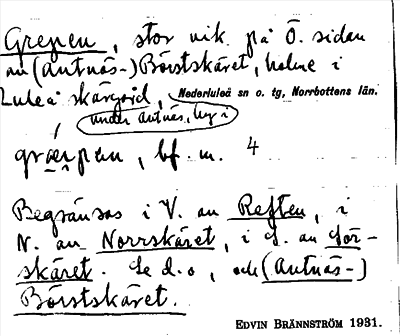 Grepen, stor vik på Ö. sidan
av (Antnäs-) Börstskäret, holme i
Luleå skärgård, Nederluleå sn o. tg, Norrbottens län.
under Antnäs, by i
græpən, bf. m. 4
Begränsas i V. av Reften, i
N. av Norrskäret, i S. av Sör-
skäret. Se d.o, och (Antnäs-)
Börstskäret.
EDVIN BRÄNNSTRÖM 1931.